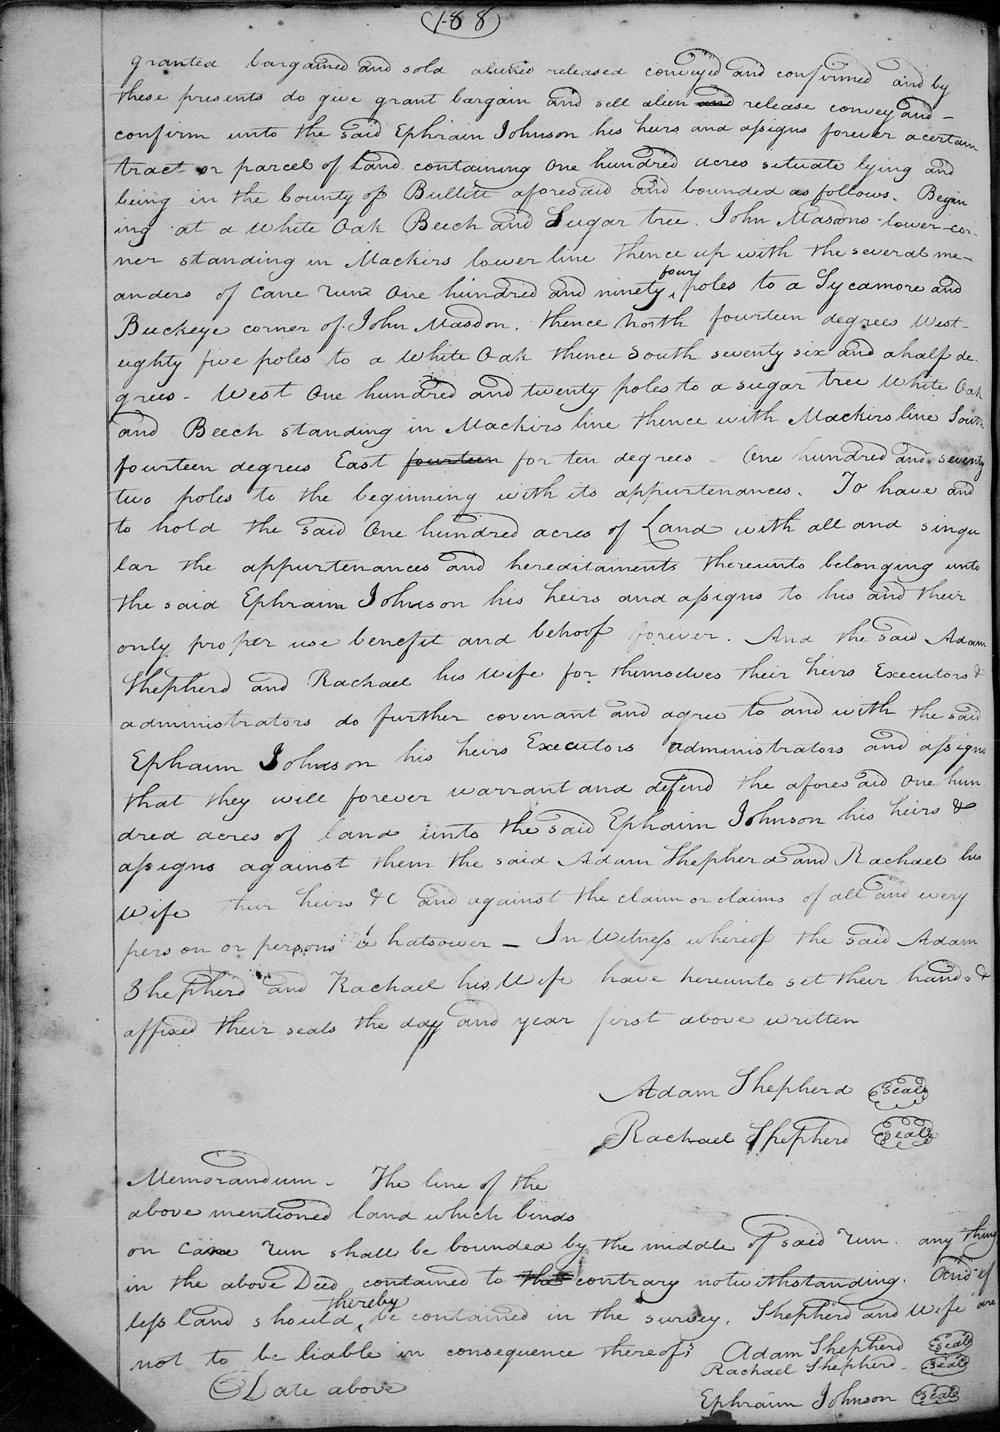 (188)
granted bargained and sold aliened released conveyed and confirmed and by
these presents do give grant bargain and sell alien and release convey and -
confirm unto the said Ephraim Johnson his heirs and assigns forever a certain
tract or parcel of Land containing One hundred acres situate lying and
being in the County of Bullitt aforesaid and bounded as follows. Begin
ing at a White Oak Beech and Sugar tree. John Masdons lower cor-
ner standing in Mackirs lower line thence up with the several me-
anders of Cane run One hundred and ninety four poles to a Sycamore and
Buckeye corner of John Masdon. thence North fourteen degrees West -
eighty five poles to a White Oak thence South seventy six and a half de-
grees - West One hundred and twenty poles to a sugar tree White Oak
and Beech standing in Mackirs line thence with Mackirs line South
fourteen degrees East fourteen for ten degrees - One hundred and seventy
two poles to the beginning with its appurtenances. To have and
to hold the said One hundred acres of Land with all and singu
lar the appurtenances and hereditaments thereunto belonging unto
the said Ephraim Johnson his heirs and assigns to his and their
only proper use benefit and behoof forever. And the said Adam
Shepherd and Rachael his Wife for themselves their heirs Executors &
administrators do further covenant and agree to and with the said
Ephraim Johnson his heirs Executors administrators and assigns
that they will forever warrant and defend the aforesaid One hun
dred acres of land unto the said Ephraim Johnson his heirs &
assigns against them the said Adam Shepherd and Rachael his
Wife their heirs &C and against the claim or claims of all and every
person or persons whatsower - In Witness whereof the said Adam
Shepherd and Rachael his Wife have hereunto set their hands &
affixed their seals the day and year first above written
Adam Shepherd Seal
Rachael Shepherd Seal
Memorandum - The line of the
above mentioned land which binds
on Cane run shall be bounded by the middle of said run. any thing
in the above Deed contained to the contrary notwithstanding. And if
less land should thereby be contained in the survey, Shepherd and Wife are
not to be liable in consequence thereof;
Adam Shepherd Seal
Rachael Shepherd - Seal
Date above
Ephraim Johnson Seal